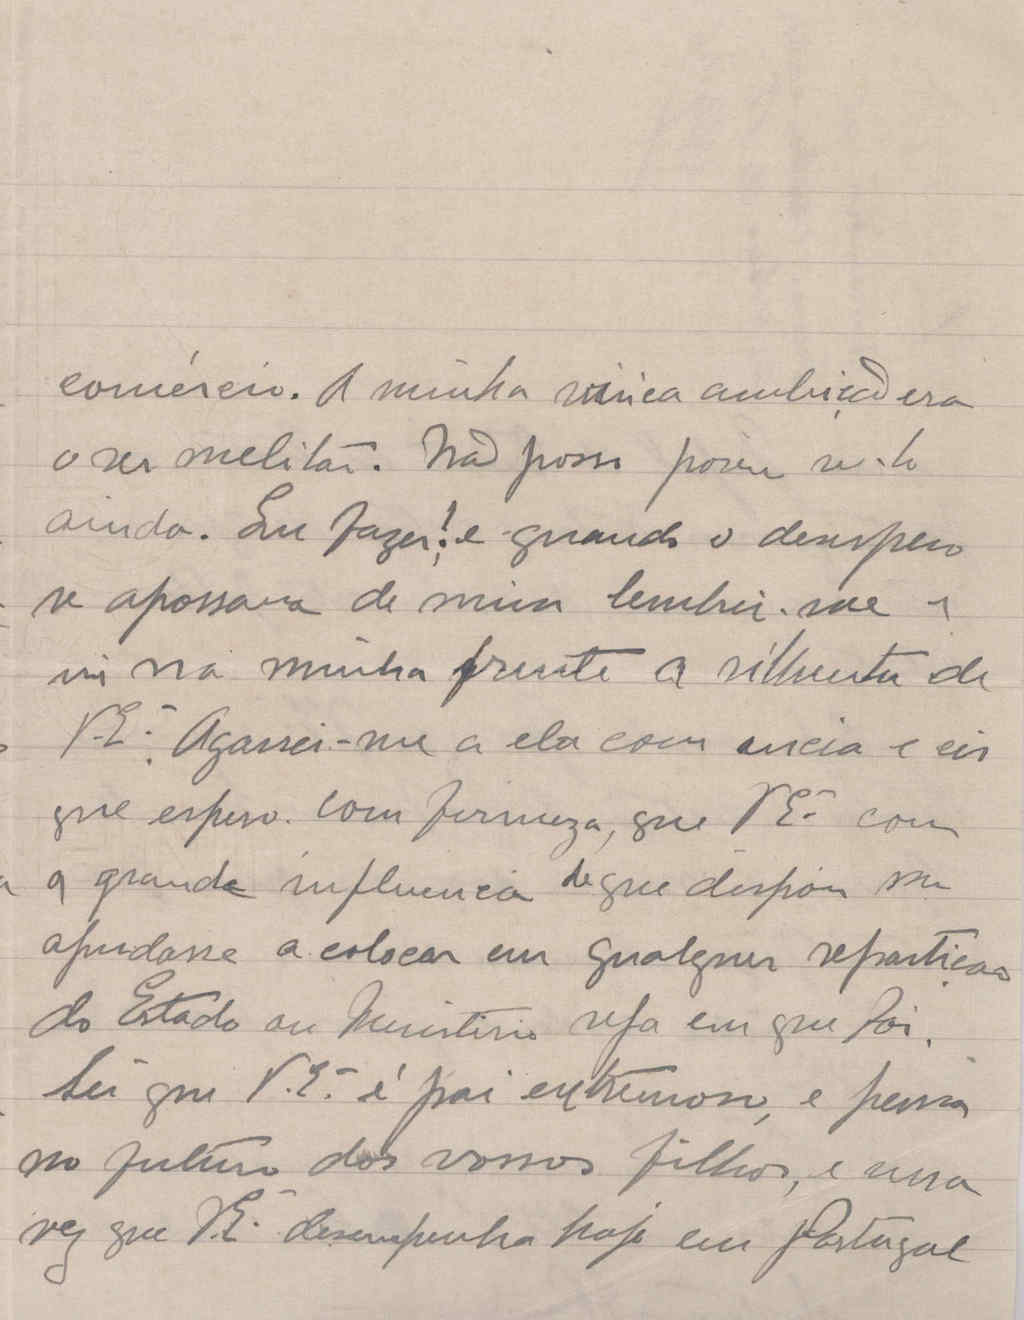 comércio. A minha unica ambição era
o ser melitar. Não posso porem se-lo
ainda. Que fazer! e quando o desespero
se apossava de mim lembrei-me e
vi na minha frente a silhueta de
V. Ex.ª Agarrei-me a ela com ancia e eis
que espero com firmeza, que V. Ex.ª com
a grande influencia de que dispõe me
ajudasse a colocar em qualquer repartição
do Estado ou Ministerio seja em que for.
Sei que V. Ex.ª é pai extremoso, e pensa
no futuro dos vossos filhos, e uma
vez que V. Ex.ª desempenha hoje em Portugal